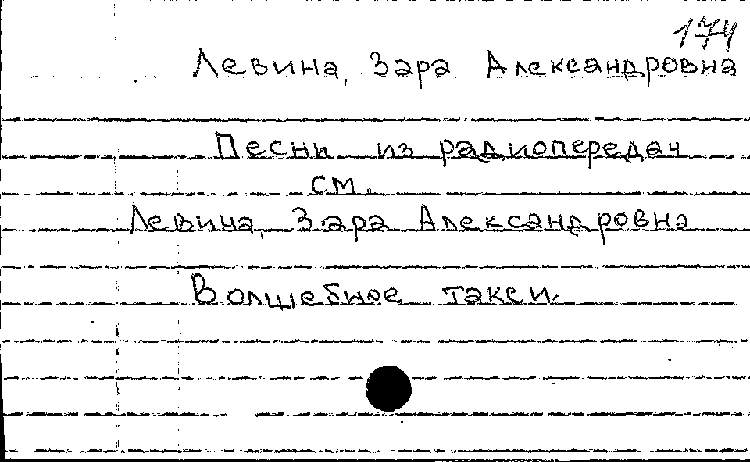 174
Левина, Зара Александровна
Песни из радиопередач
см.
Левина, Зара Александровна
Волшебное такси.